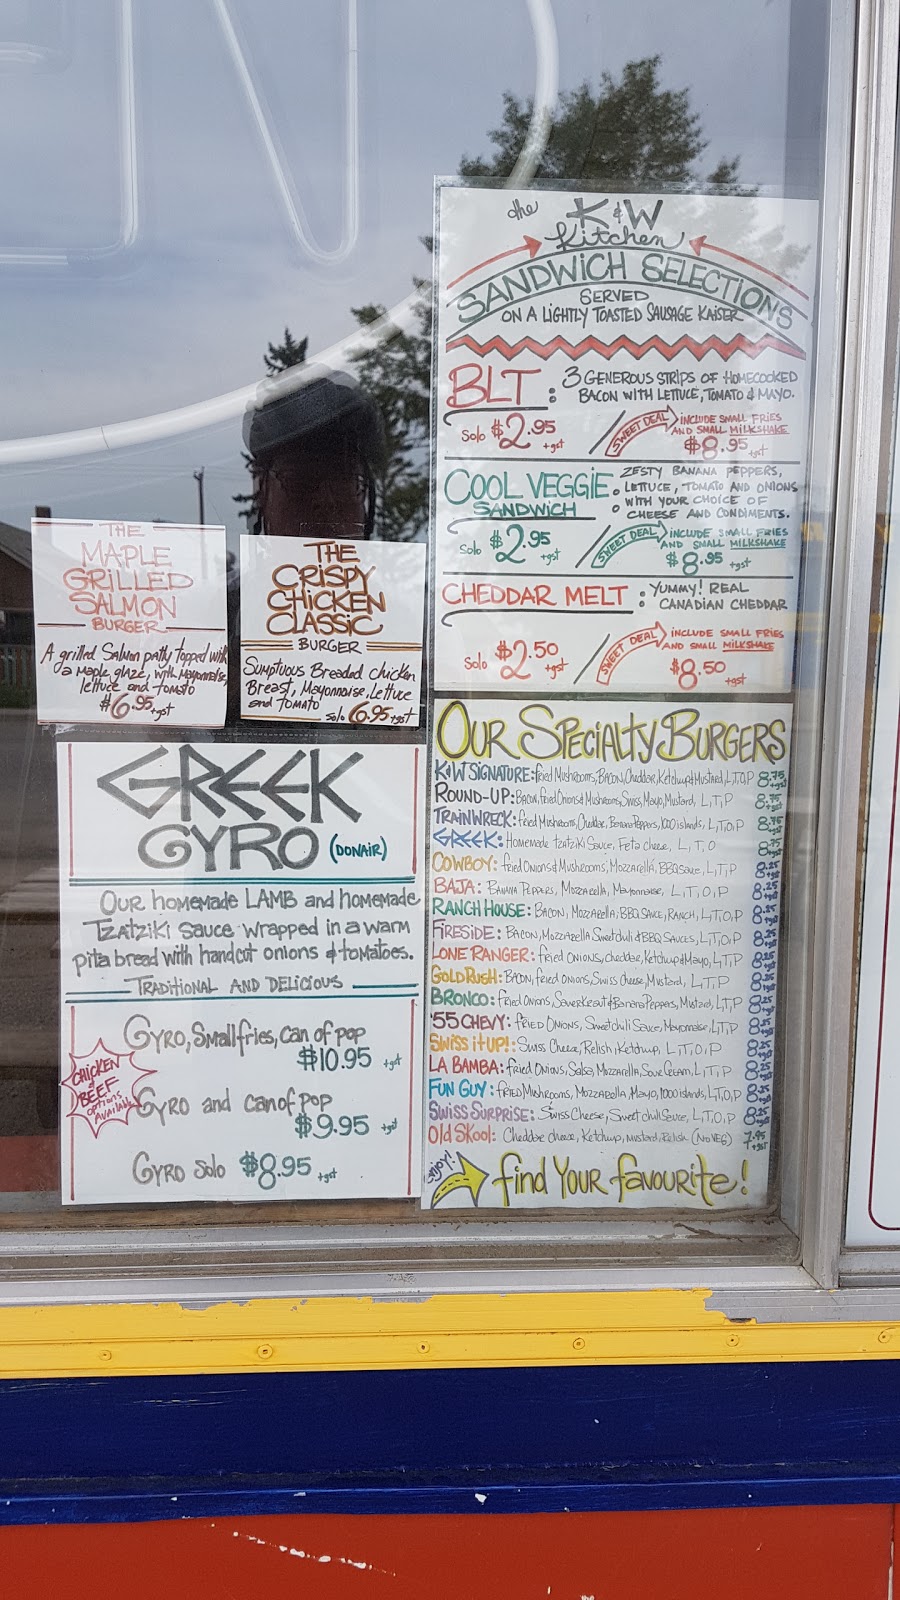 EN
the K&W
Kitchen
SANDWICH SELECTIONS
SERVED
ON A LIGHTLY TOASTED SAUSAGE KAISER
BLT : 3 GENEROUS STRIPS OF HOMECOOKED
BACON WITH LETTUCE, TOMATO & MAYO.
Solo $2.95 +gst / SWEET DEAL INCLUDE SMALL FRIES
AND SMALL MILKSHAKE
$8.95 +gst
COOL VEGGIE : ZESTY BANANA PEPPERS,
SANDWICH LETTUCE, TOMATO AND ONIONS
WITH YOUR CHOICE OF
CHEESE AND CONDIMENTS.
Solo $2.95 +gst / SWEET DEAL INCLUDE SMALL FRIES
AND SMALL MILKSHAKE
$8.95 +gst
CHEDDAR MELT : YUMMY! REAL
CANADIAN CHEDDAR
Solo $2.50 +gst / SWEET DEAL INCLUDE SMALL FRIES
AND SMALL MILKSHAKE
$8.50 +gst
THE
MAPLE
GRILLED
SALMON
BURGER
A grilled Salmon patty topped with
a maple glaze, with mayonnaise,
lettuce and tomato
$6.95 +gst
THE
CRISPY
CHICKEN
CLASSIC
BURGER
Sumptuous Breaded chicken
Breast, Mayonnaise, Lettuce
and TOMATO Solo 6.95 +gst
GREEK
GYRO (DONAIR)
Our homemade LAMB and homemade
Tzatziki sauce wrapped in a warm
pita bread with handcut onions & tomatoes.
TRADITIONAL AND DELICIOUS
Gyro, Small fries, can of pop
$10.95 +gst
CHICKEN & BEEF options AVAILABLE
Gyro and can of pop
$9.95 +gst
Gyro Solo $8.95 +gst
OUR SPECIALTY BURGERS
K&W SIGNATURE: fried Mushrooms, BACON, Cheddar, Ketchup & Mustard, L,T,O,P 8.75 +gst
ROUND-UP: Bacon, fried Onions & Mushrooms, Swiss, Mayo, Mustard, L,T,P 8.75 +gst
TRAINWRECK: fried Mushrooms, Cheddar, Banana Peppers, 1000 islands, L,T,O,P 8.75 +gst
GREEK: Homemade tzatziki Sauce, Feta cheese, L,T,O 8.75 +gst
COWBOY: fried Onions & Mushrooms, Mozzarella, BBQ Sauce, L,T,P 8.25 +gst
BAJA: BANANA PEPPERS, Mozzarella, Mayonnaise, L,T,O,P 8.25
RANCH HOUSE: BACON, Mozzarella, BBQ SAUCE, RANCH, L,T,O,P 8.25
FIRESIDE: BACON, MOZZARELLA Sweet chili & BBQ SAUCES, L,T,O,P 8.25
LONE RANGER: fried ONIONS, cheddar, Ketchup & Mayo, L,T,P 8.25
GOLD RUSH: Bacon, fried onions, Swiss Cheese, Mustard, L,T,P 8.25
BRONCO: Fried Onions, Saverkraut & Banana Peppers, Mustard, L,T,P 8.25
'55 CHEVY: FRIED ONIONS, Sweet chili Sauce, Mayonnaise, L,T,P 8.25
SWISS it UP!: Swiss Cheese, Relish, Ketchup, L,T,O,P 8.25
LA BAMBA: fried Onions, Salsa, Mozzarella, Sour Cream, L,T,P 8.25
FUN GUY: fried Mushrooms, Mozzarella, Mayo, 1000 islands, L,T,O,P 8.25
SWISS SURPRISE: Swiss Cheese, Sweet chili Sauce, L,T,O,P 8.25
Old SKool: Cheddar cheese, Ketchup, mustard, Relish (No VEG) 7.95 +gst
enjoy! find YOUR favourite!